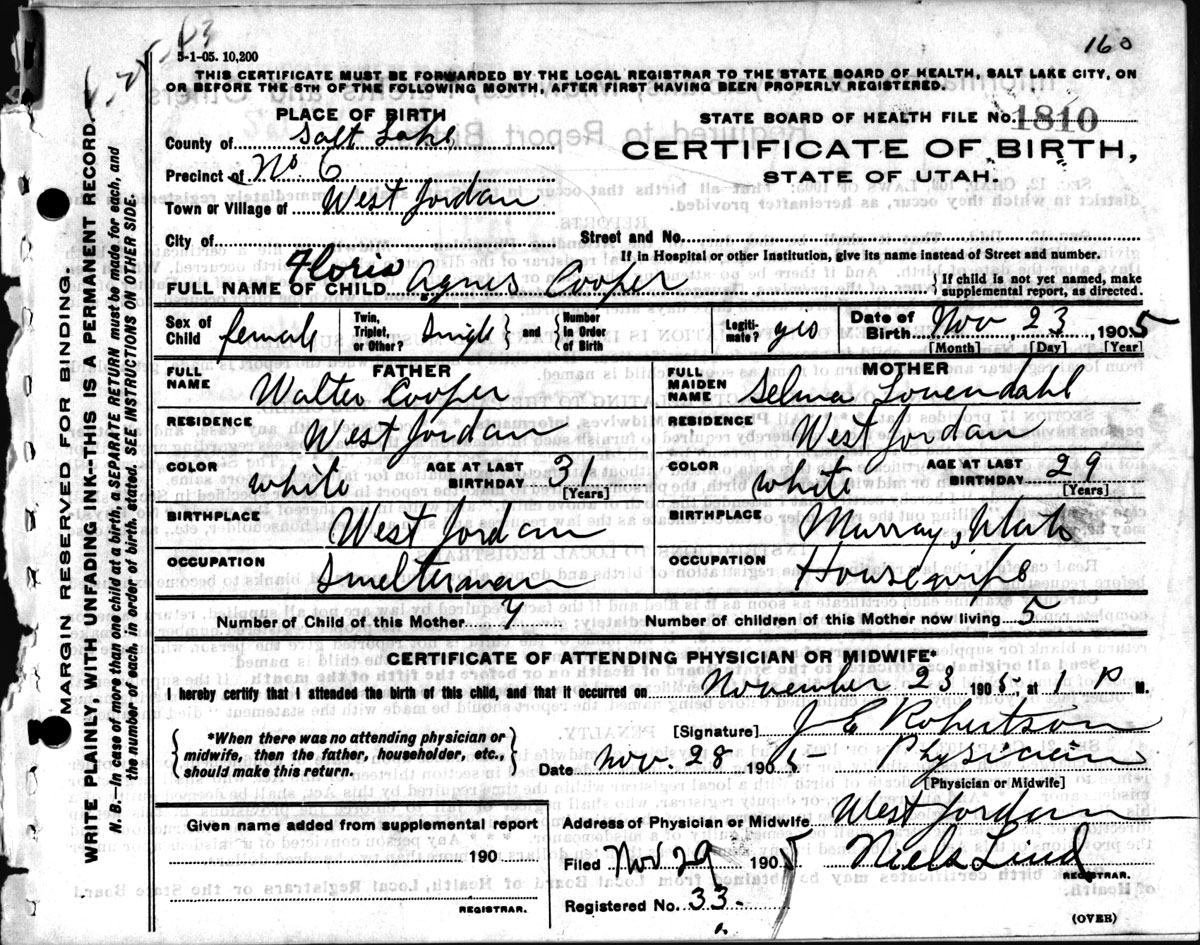 160
5-1-05. 10,200
THIS CERTIFICATE MUST BE FORWARDED BY THE LOCAL REGISTRAR TO THE STATE BOARD OF HEALTH, SALT LAKE CITY, ON
OR BEFORE THE 5TH OF THE FOLLOWING MONTH, AFTER FIRST HAVING BEEN PROPERLY REGISTERED.
PLACE OF BIRTH
STATE BOARD OF HEALTH FILE No. 1810
County of Salt Lake
CERTIFICATE OF BIRTH,
Precinct of No 6
STATE OF UTAH.
Town or Village of West Jordan
City of Street and No.
If in Hospital or other Institution, give its name instead of Street and number.
FULL NAME OF CHILD Floris Agnes Cooper { If child is not yet named, make
supplemental report, as directed.
Sex of Child female Twin, Triplet, or Other? Single } and { Number in Order of Birth Legiti-mate? yes Date of Birth Nov 23, 1905
[Month] [Day] [Year]
FATHER MOTHER
FULL NAME Walter Cooper FULL MAIDEN NAME Selma Lovendahl
RESIDENCE West Jordan RESIDENCE West Jordan
COLOR white AGE AT LAST BIRTHDAY 31 [Years] COLOR white AGE AT LAST BIRTHDAY 29 [Years]
BIRTHPLACE West Jordan BIRTHPLACE Murray, Utah
OCCUPATION Smelterman OCCUPATION Housewife
Number of Child of this Mother Number of children of this Mother now living 5
CERTIFICATE OF ATTENDING PHYSICIAN OR MIDWIFE*
I hereby certify that I attended the birth of this child, and that it occurred on November 23 1905, at 1 P M.
{ *When there was no attending physician or
midwife, then the father, householder, etc.,
should make this return. }
[Signature] J E Robertson
Date Nov. 28 1905 Physician
[Physician or Midwife]
Given name added from supplemental report
190
REGISTRAR.
Address of Physician or Midwife West Jordan
Filed Nov 29 1905 Niels Lind
REGISTRAR.
Registered No. 33
(OVER)
MARGIN RESERVED FOR BINDING.
WRITE PLAINLY, WITH UNFADING INK--THIS IS A PERMANENT RECORD.
N. B.—In case of more than one child at a birth, a SEPARATE RETURN must be made for each, and
the number of each, in order of birth, stated. SEE INSTRUCTIONS ON OTHER SIDE.